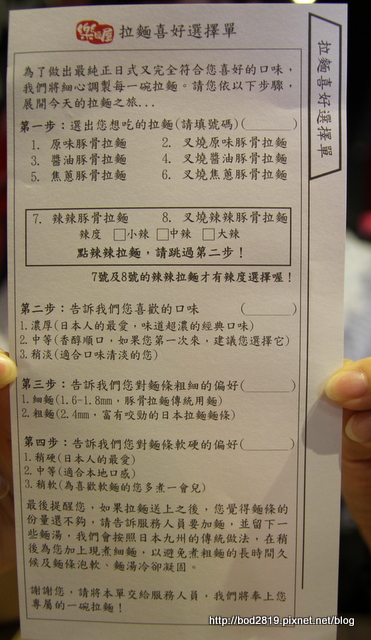 樂麵屋 拉麵喜好選擇單
拉麵喜好選擇單
為了做出最純正日式又完全符合您喜好的口味，
我們將細心調製每一碗拉麵。請您依以下步驟，
展開今天的拉麵之旅...
第一步：選出您想吃的拉麵(請填號碼)(______)
1. 原味豚骨拉麵 2. 叉燒原味豚骨拉麵
3. 醬油豚骨拉麵 4. 叉燒醬油豚骨拉麵
5. 焦蔥豚骨拉麵 6. 叉燒焦蔥豚骨拉麵
7. 辣辣豚骨拉麵 8. 叉燒辣辣豚骨拉麵
辣度 □小辣 □中辣 □大辣
點辣辣拉麵，請跳過第二步！
7號及8號的辣辣拉麵才有辣度選擇喔！
第二步：告訴我們您喜歡的口味 (______)
1.濃厚(日本人的最愛，味道超濃的經典口味)
2.中等(香醇順口，如果您第一次來，建議您選擇它)
3.稍淡(適合口味清淡的您)
第三步：告訴我們您對麵條粗細的偏好(______)
1.細麵(1.6-1.8mm，豚骨拉麵傳統用麵)
2.粗麵(2.4mm，富有咬勁的日本拉麵麵條)
第四步：告訴我們您對麵條軟硬的偏好(______)
1.稍硬(日本人的最愛)
2.中等(適合本地口感)
3.稍軟(為喜歡軟麵的您多煮一會兒)
最後提醒您，如果拉麵送上之後，您覺得麵條的
份量還不夠，請告訴服務人員要加麵，並留下一
些麵湯，我們會按照日本九州的傳統做法，在稍
後為您加上現煮細麵，以避免煮粗麵的長時間久
候及麵條泡軟、麵湯冷卻凝固。
謝謝您，請將本單交給服務人員，我們將奉上您
專屬的一碗拉麵！
http://bod2819.pixnet.net/blog